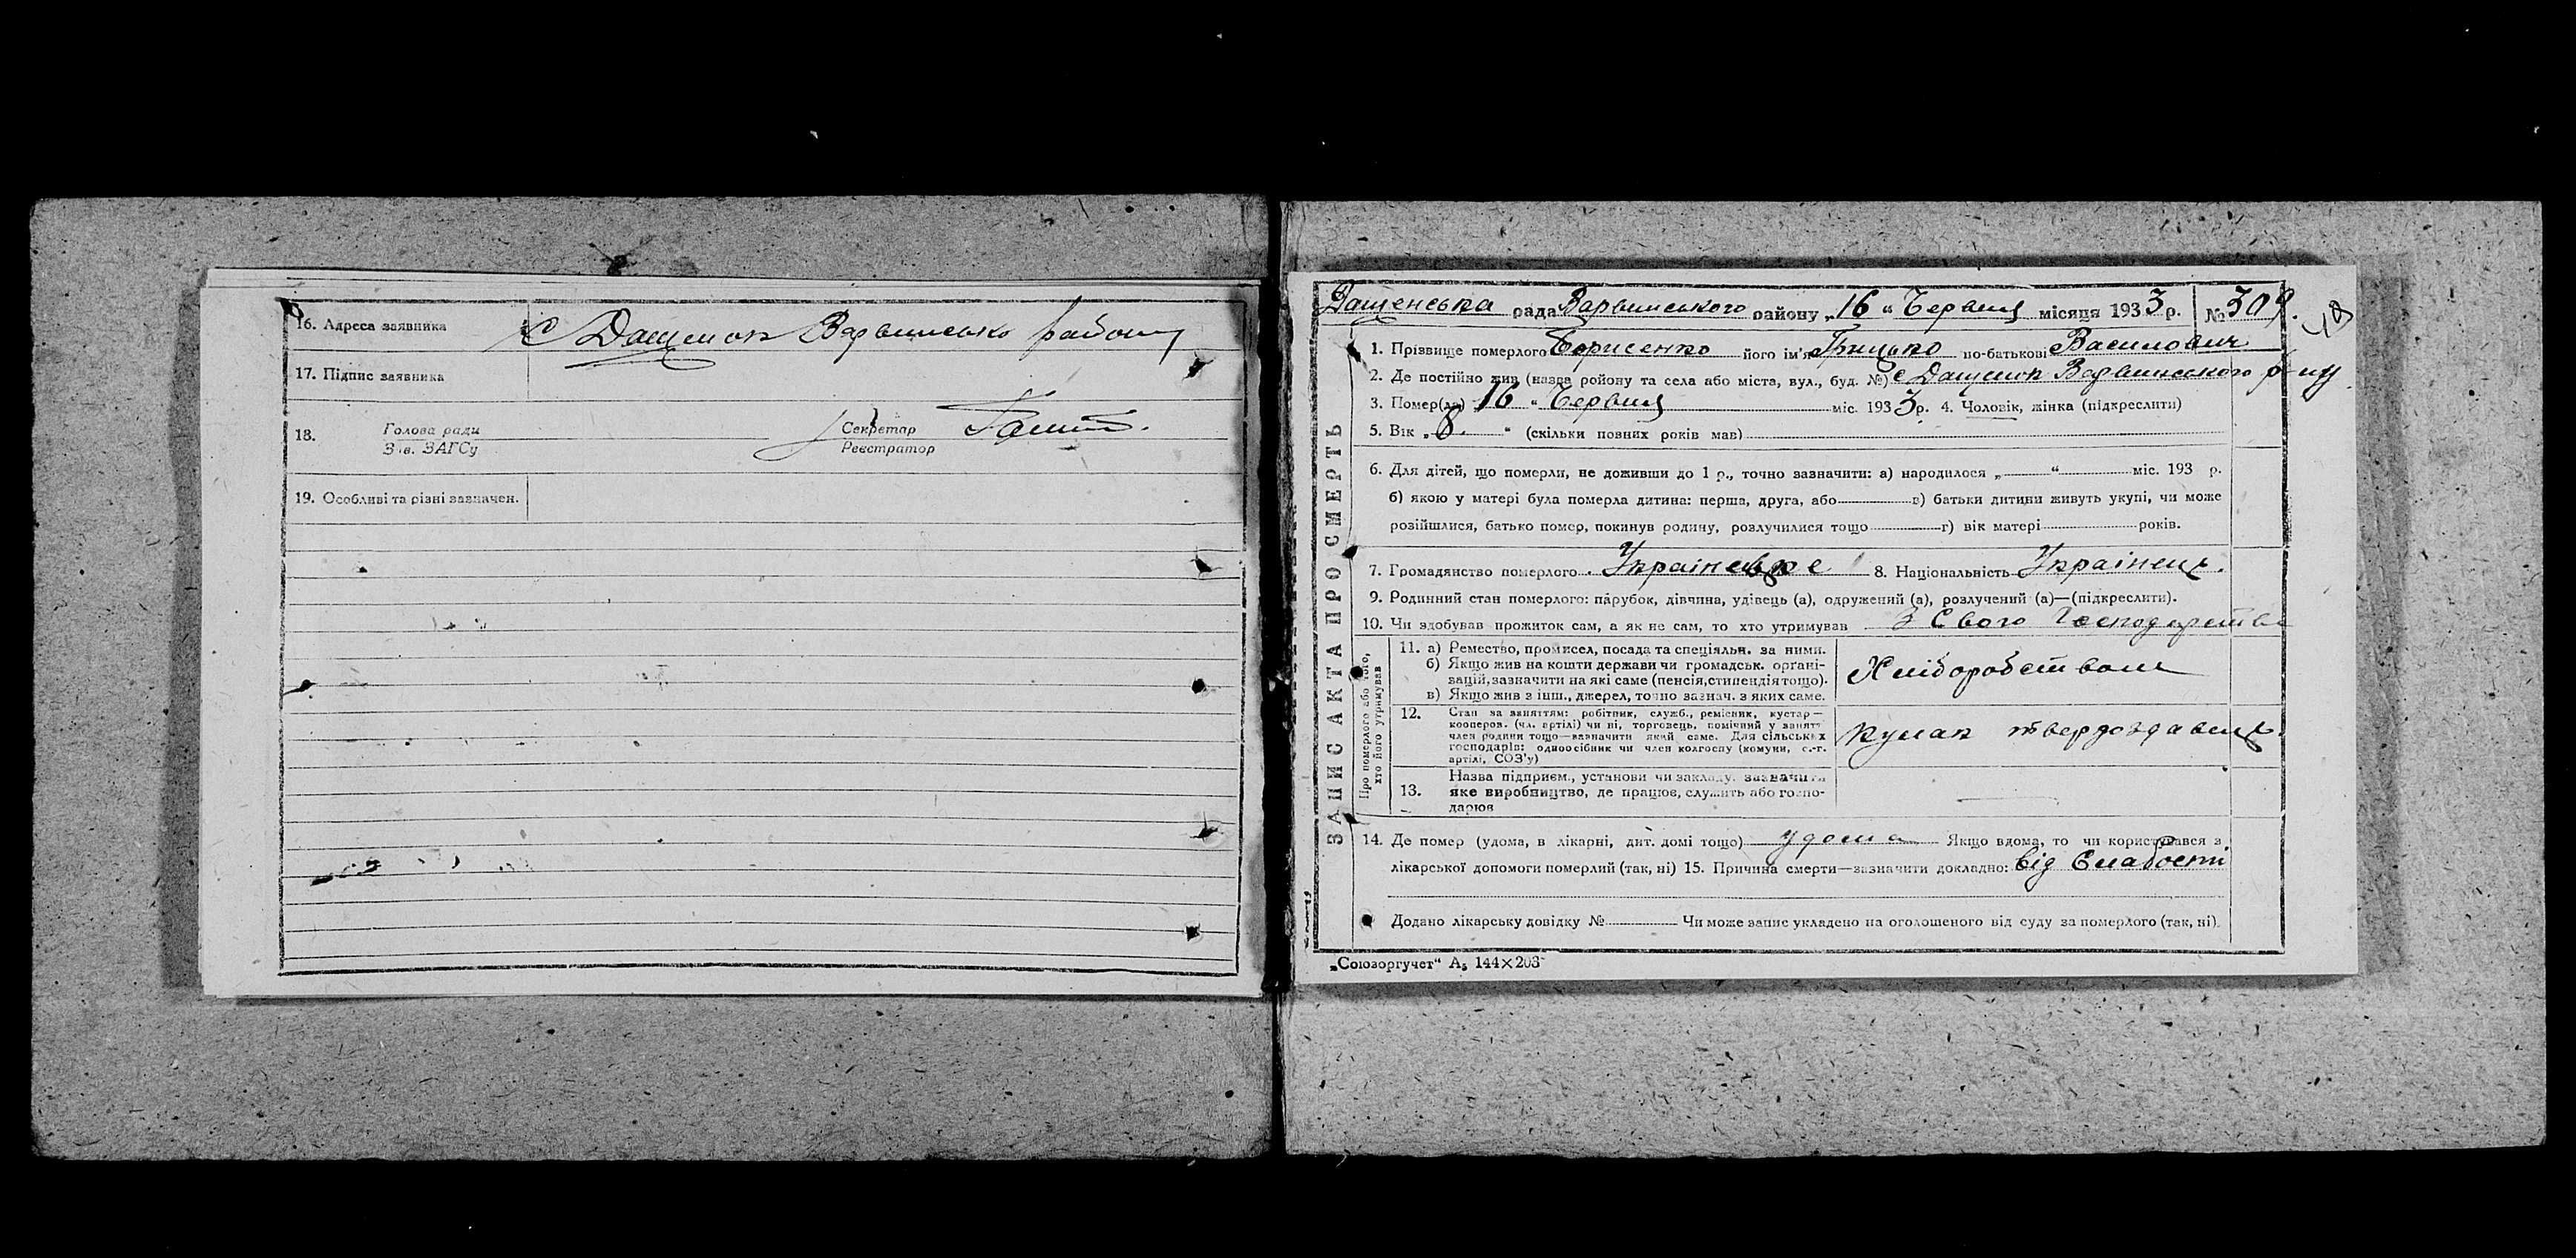 16. Адреса заявника с Дащенок Варвинсько району
17. Підпис заявника
18. Голова ради Секретар
Зав. ЗАГСу Реєстратор
19. Особливі та різні зазначен.
Дащенська рада Варвинського району „16“ Червня місяця 1933 р. № 309.
1. Прізвище померлого Борисенко його ім'я Грицько по-батькові Василович
2. Де постійно жив (назва ройону та села або міста, вул., буд. №) с Дащенок Варвинського р-ну
3. Помер(ла) „16“ Червня міс. 1933 р. 4. Чоловік, жінка (підкреслити)
5. Вік „8.“ (скільки повних років мав)
6. Для дітей, що померли, не доживши до 1 р., точно зазначити: а) народилося „ “ міс. 193 р.
б) якою у матері була померла дитина: перша, друга, або в) батьки дитини живуть укупі, чи може
розійшлися, батько помер, покинув родину, розлучилися тощо г) вік матері років.
7. Громадянство померлого Українське 8. Національність Українец.
9. Родинний стан померлого: парубок, дівчина, удівець (а), одружений (а), розлучений (а)—(підкреслити).
10. Чи здобував прожиток сам, а як не сам, то хто утримував З Свого Господарства
ЗАПИС АКТА ПРО СМЕРТЬ
Про померлого або того,
хто його утримував
11. а) Ремество, промисел, посада та спеціяльн. за ними.
б) Якщо жив на кошти держави чи громадськ. органі-
зацій, зазначити на які саме (пенсія, стипендія тощо).
в) Якщо жив з інш., джерел, точно зазнач. з яких саме.
Хліборобством
12. Стан за заняттям: робітник, служб., ремісник, кустар—
кооперов. (чл. артілі) чи ні, торговець, помічний у занятт
член родини тощо—вазначити який саме. Для сільських
господарів: одноосібник чи член колгоспу (комуни, с.-г.
артілі, СОЗ'у)
кулак твердоздавець.
Назва підприєм., установи чи закладу. зазначити
13. яке виробництво, де працює, служить або госпо-
дарює
14. Де помер (удома, в лікарні, дит. домі тощо) удома Якщо вдома, то чи користувався з
лікарської допомоги померлий (так, ні) 15. Причина смерти—зазначити докладно: від Слабості
Додано лікарську довідку № Чи може запис укладено на оголошеного від суду за померлого (так, ні).
„Союзоргучет“ А₅ 144×203